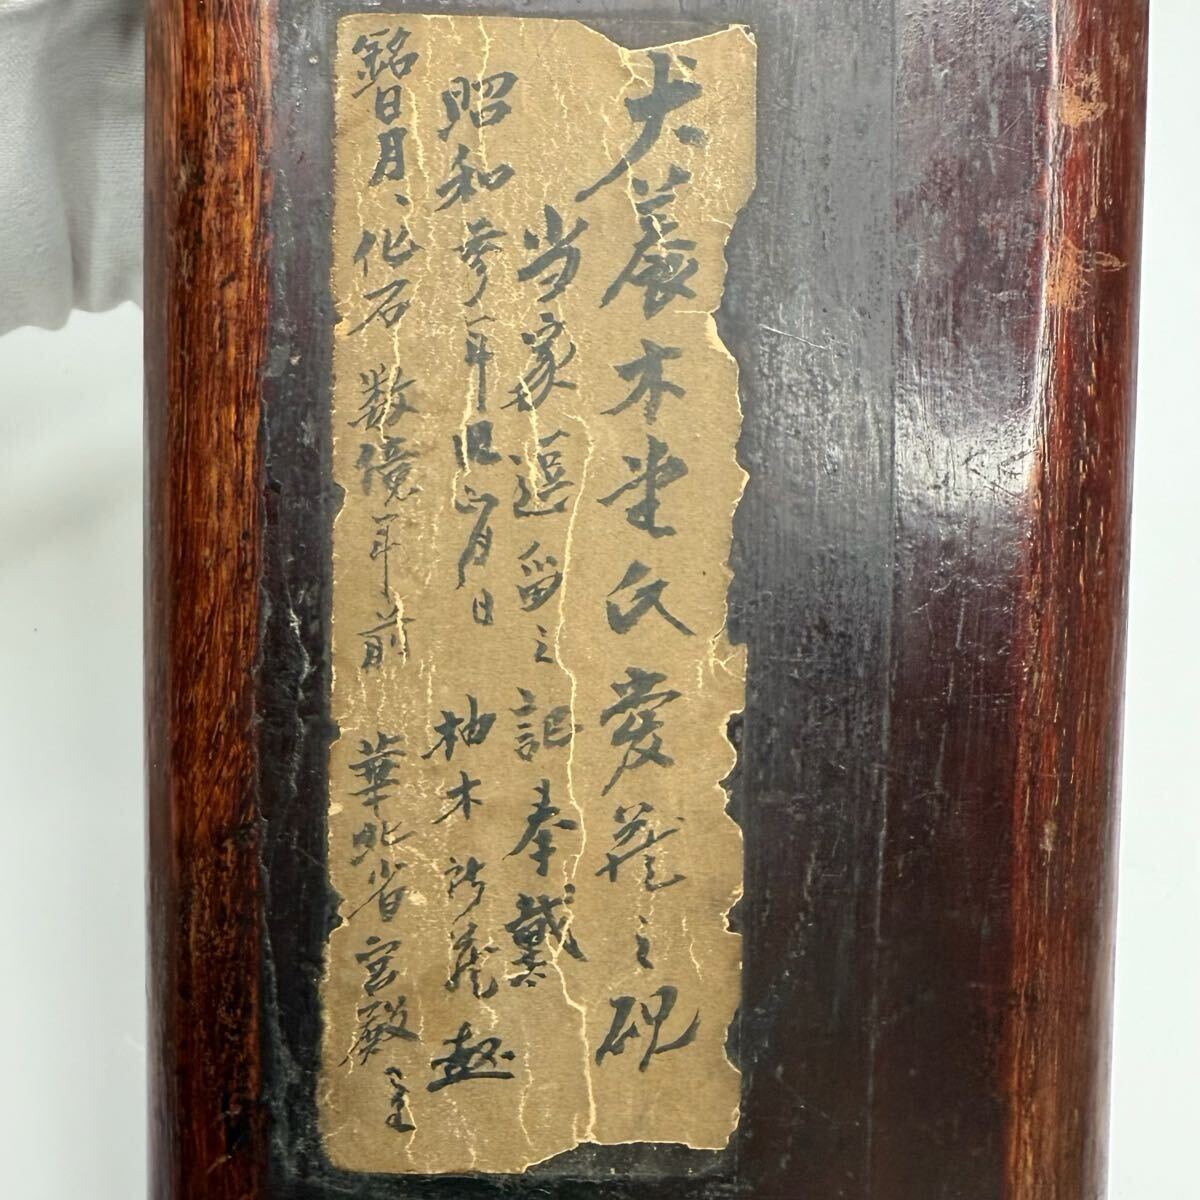 犬養木堂氏愛蔵之硯
当家逗留之記奉戴
昭和参年四月日 柚木所蔵
銘日月、化石数億年前 華北省宮殿